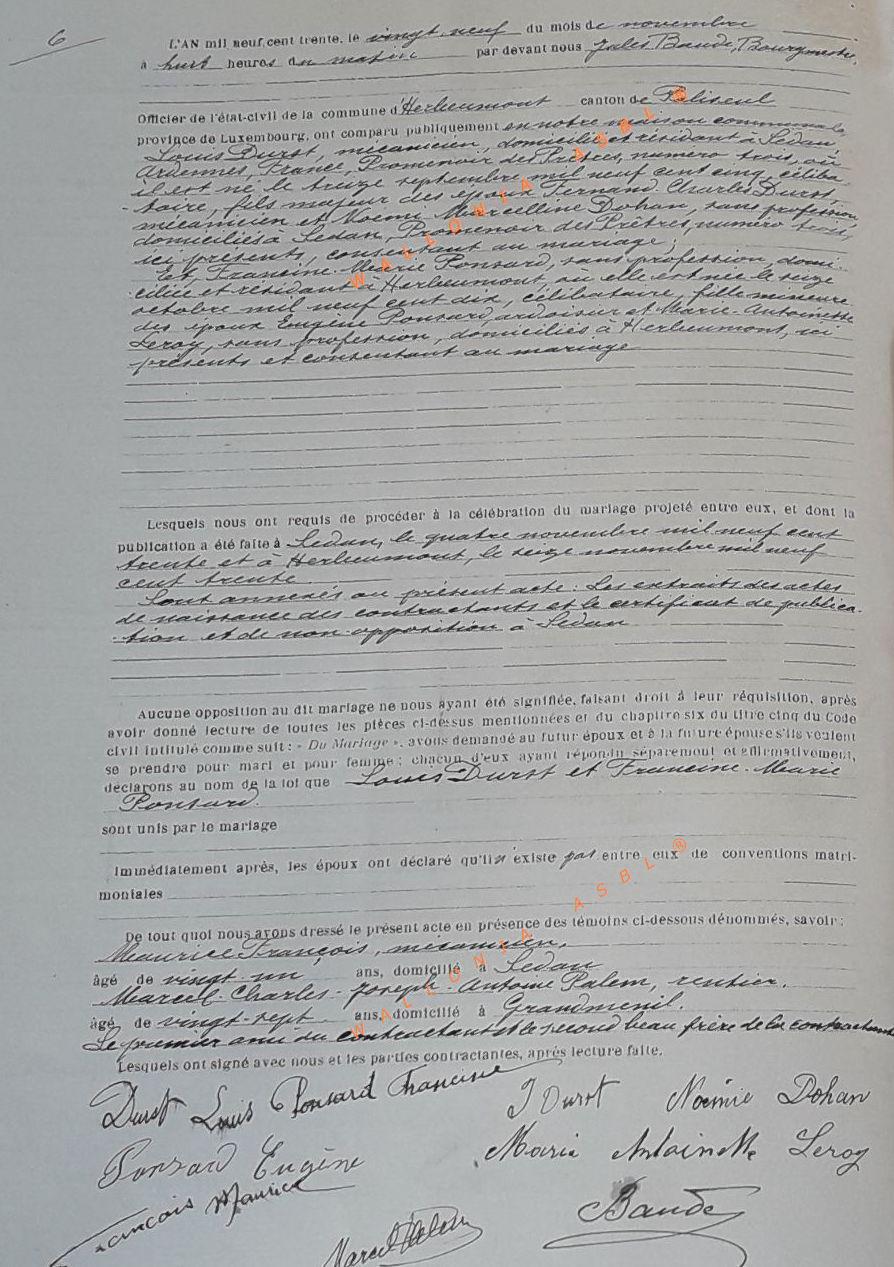 6
L'AN mil neuf cent trente, le vingt-neuf du mois de novembre
à huit heures du matin par devant nous Jules Baude, Bourgmestre,
Officier de l'état-civil de la commune d'Herbeumont canton de Paliseul
province de Luxembourg, ont comparu publiquement en notre maison communale
Louis Durst, mécanicien, domicilié et résidant à Sedan,
Ardennes, France, Promenoir des Prêtres, numéro trois, où
il est né le treize septembre mil neuf cent cinq, céliba-
-taire, fils majeur des époux Fernand Charles Durst,
mécanicien et Noémi Marcelline Dohan, sans profession,
domiciliés à Sedan, Promenoir des Prêtres, numéro trois,
ici présents, consentant au mariage;
Et, Francine-Marie Ponsard, sans profession, domi-
ciliée et résidant à Herbeumont, où elle est née le seize
octobre mil neuf cent dix, célibataire, fille mineure
des époux Eugène Ponsard, ardoisier et Marie-Antoinette
Leroy, sans profession, domiciliés à Herbeumont, ici
présents et consentant au mariage
Lesquels nous ont requis de procéder à la célébration du mariage projeté entre eux, et dont la
publication a été faite à Sedan, le quatre novembre mil neuf cent
trente et à Herbeumont, le seize novembre mil neuf
cent trente
Sont annexés au présent acte: Les extraits des actes
de naissance des contractants et le certificat de publica-
-tion et de non-opposition à Sedan
Aucune opposition au dit mariage ne nous ayant été signifiée, faisant droit à leur réquisition, après
avoir donné lecture de toutes les pièces ci-dessus mentionnées et du chapitre six du titre cinq du Code
civil intitulé comme suit: « Du Mariage », avons demandé au futur époux et à la future épouse s'ils veulent
se prendre pour mari et pour femme; chacun d'eux ayant répondu séparément et affirmativement,
déclarons au nom de la loi que Louis Durst et Francine-Marie
Ponsard.
sont unis par le mariage
Immédiatement après, les époux ont déclaré qu'il n'existe pas entre eux de conventions matri-
moniales
De tout quoi nous avons dressé le présent acte en présence des témoins ci-dessous dénommés, savoir:
Maurice François, mécanicien,
âgé de vingt un ans, domicilié à Sedan
Marcel-Charles-Joseph-Antoine Palem, rentier.
âgé de vingt-sept ans, domicilié à Grandmenil.
Le premier ami du contractant et le second beau frère de la contractante
Lesquels ont signé avec nous et les parties contractantes, après lecture faite.
Durst Louis Ponsard Francine J Durst Noémie Dohan
Ponsard Eugène Maria Antoinette Leroy
François Maurice Marcel Palem Baude
WALLONIA ASBL®
WALLONIA ASBL®